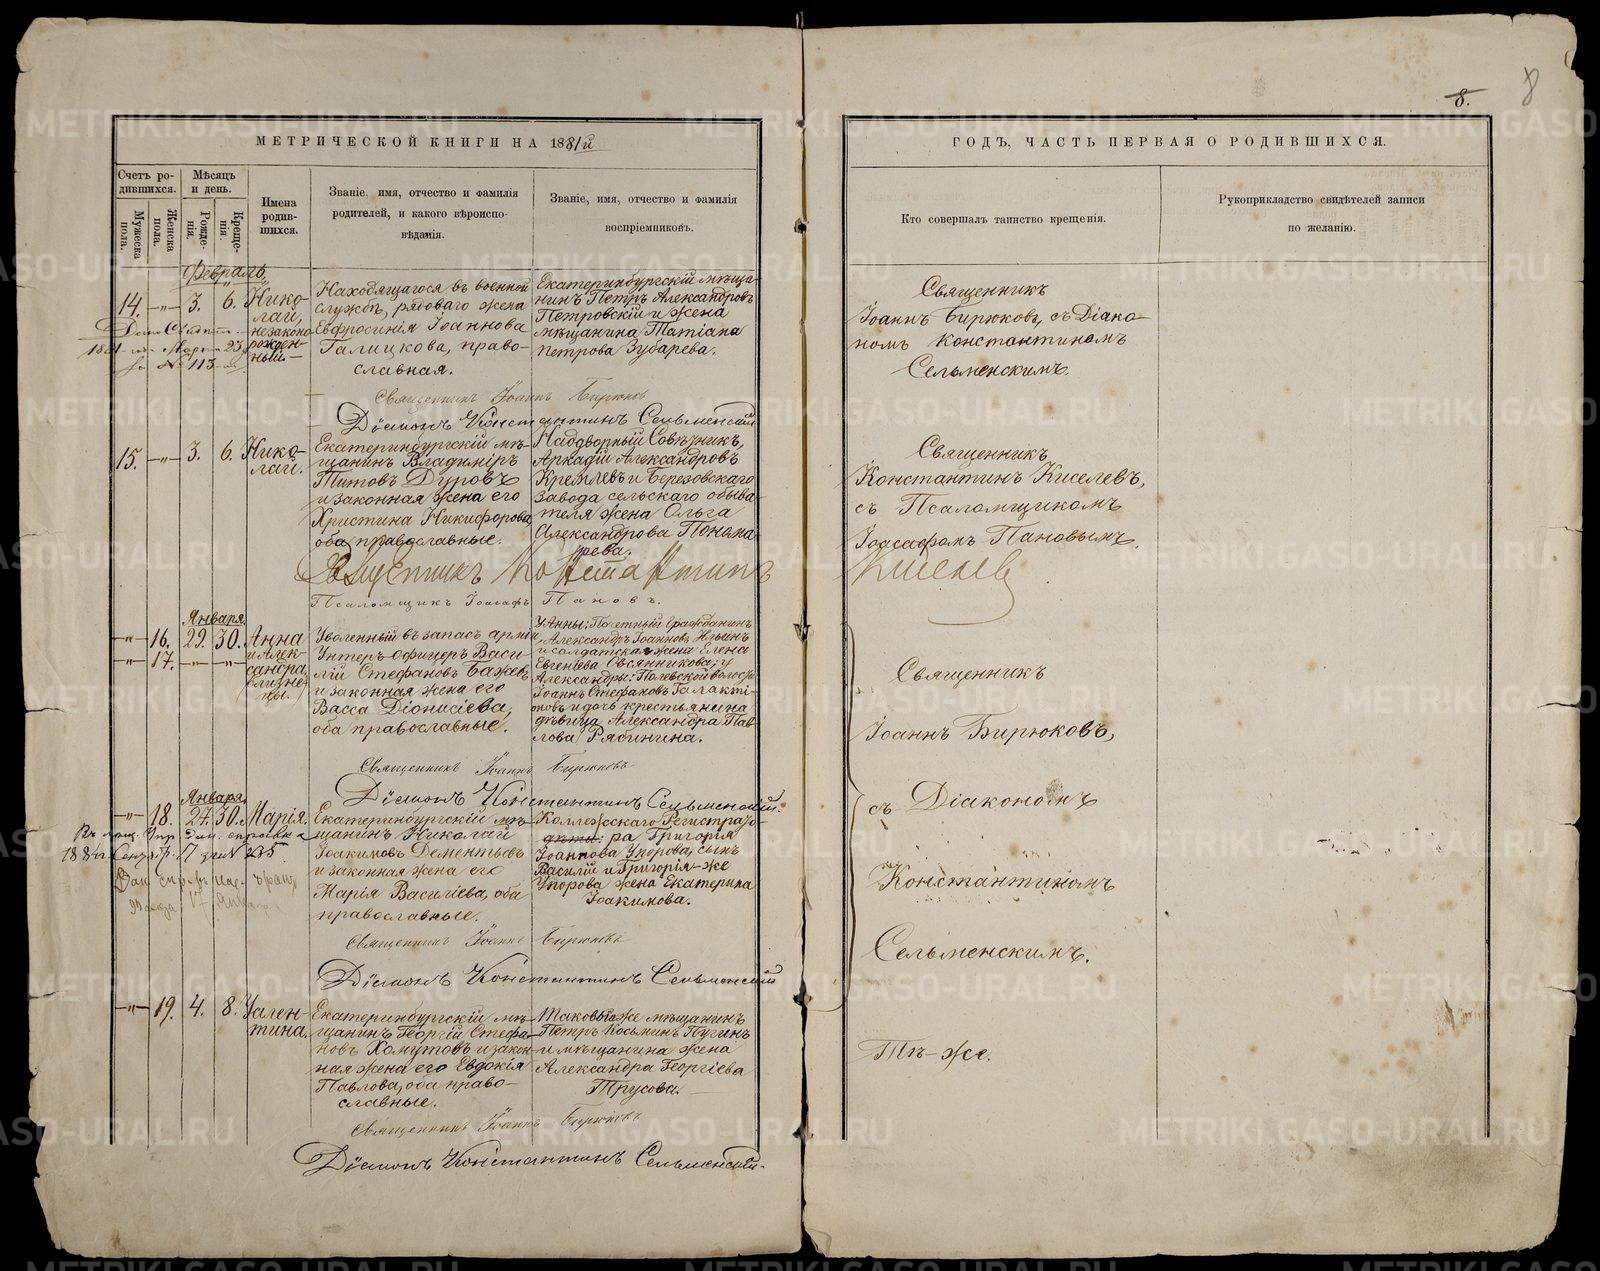 8.
8
МЕТРИЧЕСКОЙ КНИГИ НА 1881й
ГОДЪ, ЧАСТЬ ПЕРВАЯ О РОДИВШИХСЯ.
Счетъ ро-
дившихся.
Мужеска пола.
Женска пола.
Мѣсяцъ
и день.
Рожде-
нія.
Креще-
нія.
Имена
родив-
шихся.
Званіе, имя, отчество и фамилія
родителей, и какого вѣроиспо-
вѣданія.
Званіе, имя, отчество и фамилія
воспріемниковъ.
Кто совершалъ таинство крещенія.
Рукоприкладство свидѣтелей записи
по желанію.
Февраль
14. —"— 3. 6.
Нико-
лай,
незаконо-
рожден-
ный —
1881 Март 23
№ 113
Находящагося въ военной
службѣ, рядоваго жена
Евфросинія Іоаннова
Галицкова, право-
славная.
Екатеринбургскій мѣща-
нинъ Петръ Александровъ
Петровскій и жена
мѣщанина Татіана
Петрова Зубарева.
Священникъ
Іоаннъ Бирюковъ, съ Діако-
номъ Константиномъ
Сельменскимъ.
Священникъ Іоаннъ Бирюковъ
Діаконъ Константинъ Сельменскій
15. —"— 3. 6.
Нико-
лай.
Екатеринбургскій мѣ-
щанинъ Владиміръ
Титовъ Дуровъ
и законная жена его
Христина Никифорова,
оба православные.
Надворный Совѣтникъ,
Аркадій Александровъ
Кремлевъ и Березовскаго
завода сельскаго обыва-
теля жена Ольга
Александрова Понома-
рева.
Священникъ
Константинъ Киселевъ,
съ Псаломщикомъ
Іоасафомъ Пановымъ.
Священникъ Константинъ Киселев
Псаломщикъ Іоасафъ Пановъ.
Января
—"— 16. 29. 30.
—"— 17. —"— —"—
Анна
и Алек-
сандра,
близне-
цы.
Уволенный въ запасъ арміи,
Унтеръ офицеръ Васи-
лій Стефановъ Бажевъ
и законная жена его
Васса Діонисіева,
оба православные.
У Анны: Почетный Гражданинъ
Александръ Іоанновъ Ильинъ
и солдатская жена Елена
Евгеніева Овсянникова; у
Александры: Полевской волости
Іоаннъ Стефановъ Галакті-
оновъ и дочь крестьянина
дѣвица Александра Пав-
лова Рябинина.
Священникъ
Іоаннъ Бирюковъ,
съ Діакономъ
Константиномъ
Сельменскимъ.
Священникъ Іоаннъ Бирюковъ
Діаконъ Константинъ Сельменскій.
Января
—"— 18. 27. 30.
Марія.
Екатеринбургскій мѣ-
щанинъ Николай
Іоакимовъ Дементьевъ
и законная жена его
Марія Васильева, оба
православные.
Коллежскаго Регистрато-
ра Григорія
Іоаннова Упорова, сынъ
Василій и Григорія-же
Упорова жена Екатерина
Іоакимова.
Священникъ Іоаннъ Бирюковъ
Діаконъ Константинъ Сельменскій
—"— 19. 4. 8.
Вален-
тина.
Екатеринбургскій мѣ-
щанинъ Георгій Стефа-
новъ Хомутовъ и закон-
ная жена его Евдокія
Павлова, оба право-
славные.
Таковый-же мѣщанинъ
Петръ Косьминъ Пугинъ
и мѣщанина жена
Александра Георгіева
Трусова.
Тѣ-же.
Священникъ Іоаннъ Бирюковъ
Діаконъ Константинъ Сельменскій.
METRIKI.GASO-URAL.RU